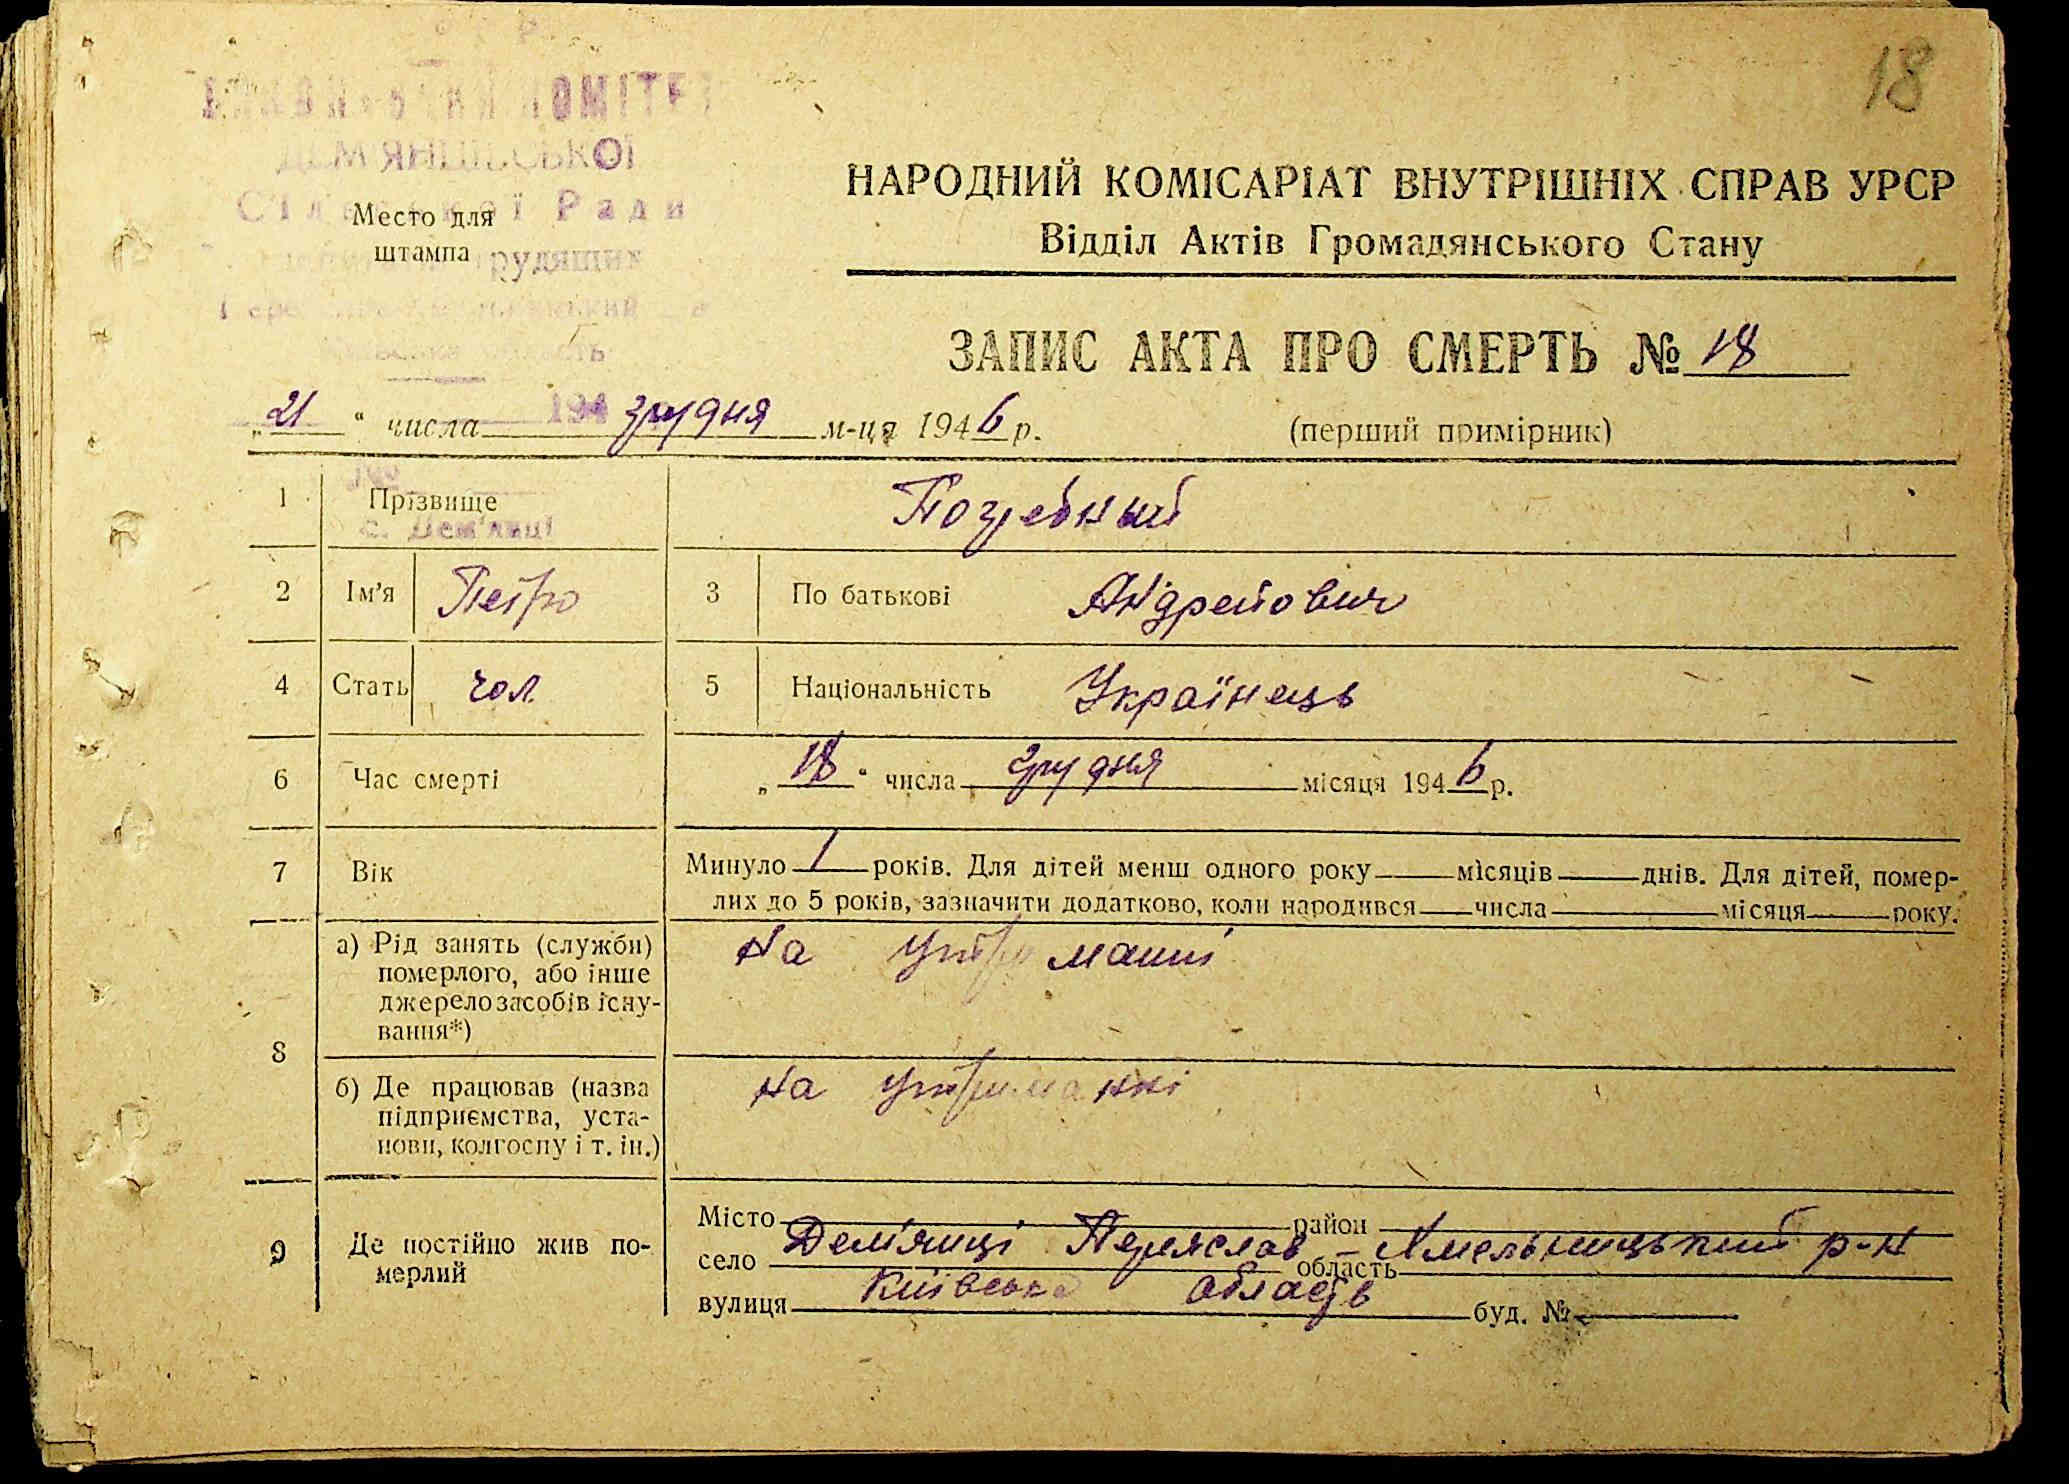 18
КОМІТЕТ
ДЕМ'ЯНЦІВСЬКОЇ
Сільської Ради
Место для
штампа
трудящих
область
НАРОДНИЙ КОМІСАРІАТ ВНУТРІШНІХ СПРАВ УРСР
Відділ Актів Громадянського Стану
ЗАПИС АКТА ПРО СМЕРТЬ № 18
„21“ числа грудня м-ця 1946 р.
(перший примірник)
194
с. Дем'янці
1 Прізвище Погребный
2 Ім'я Петро 3 По батькові Андрейович
4 Стать чол. 5 Національність Українець
6 Час смерті „18“ числа грудня місяця 1946 р.
7 Вік Минуло 1 років. Для дітей менш одного року місяців днів. Для дітей, помер-
лих до 5 років, зазначити додатково, коли народився числа місяця року.
8 а) Рід занять (служби) померлого, або інше джерело засобів існу-вання*) на утриманні
б) Де працював (назва підприємства, уста-нови, колгоспу і т. ін.) на утриманні
9 Де постійно жив по-мерлий
Місто район
село Дем'янці Переяслав-Хмельницький р-н
область
вулиця Київська область буд. №